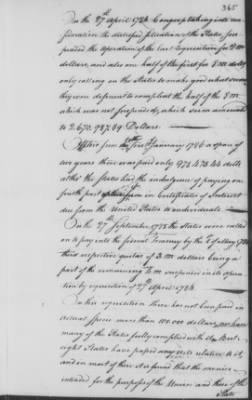 365
On the 27th April 1784 Congress taking into con
sideration the distressed situation of the States, sus
pended the operation of the last Requisition for 2 M
dollars, and also one half of the first for 8 M dollars
only calling on the States to make good what sums
they were deficient to compleat the half of the 8 M
which was not suspended, which sum amounted
to 2.670.987.89 Dollars.
From the first January 1786 a space of
two years there was paid only 973.478.44 dolls
altho' the States had the indulgence of paying one
fourth part in Certificates of Interest
due from the United States to individuals
On the 27th September 1785 the States were called
on to pay into the federal Treasury by the 1st of May 1786
their respective quotas of 3 M dollars being a
part of the remaining 4 M suspended in its opera
tion by requisition of 27th April 1784
On this requisition there has not been paid in
actual Specie more than 100.000 dollars, nor have
many of the States fully complied with it,
eight States have passed Acts relative to it,
and in most of these it is found that the monies
intended for the purposes of the Union and those of the
State